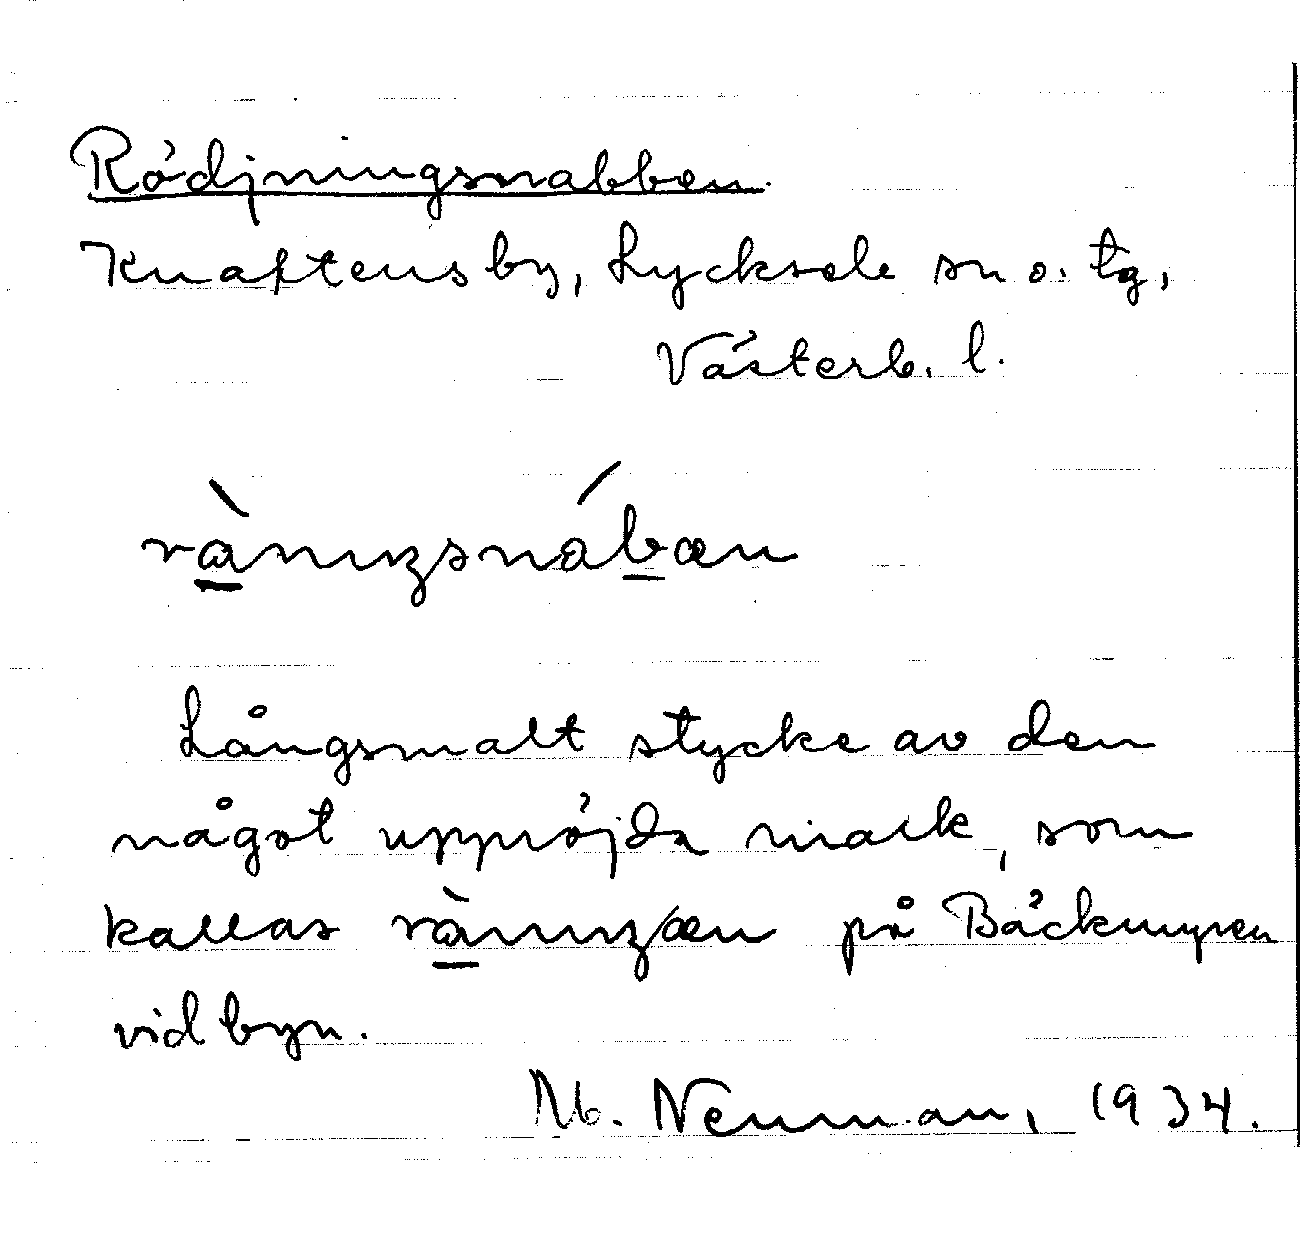 Rödjningsnabben.
Knaftens by, Lycksele sn o. tg,
Västerb. l.
rànιŋsnábæn
Långsmalt stycke av den
något uppröjda mark, som
kallas rànιŋæn på Bäckmyren
vid byn.
M. Neuman, 1934.